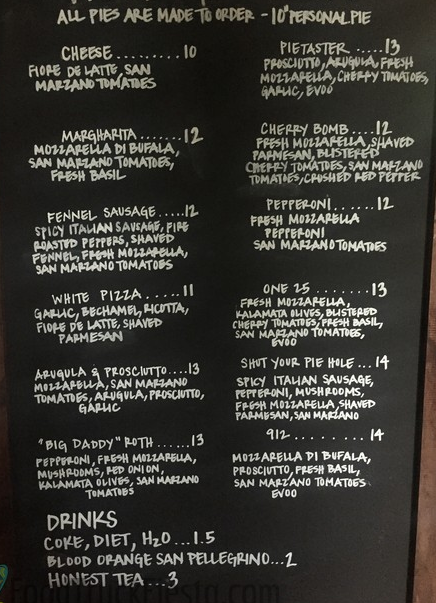 ALL PIES ARE MADE TO ORDER - 10" PERSONAL PIE
CHEESE.........10
FIORE DE LATTE, SAN
MARZANO TOMATOES
MARGHARITA.......12
MOZZARELLA DI BUFALA,
SAN MARZANO TOMATOES,
FRESH BASIL
FENNEL SAUSAGE.....12
SPICY ITALIAN SAUSAGE, FIRE
ROASTED PEPPERS, SHAVED
FENNEL, FRESH MOZZARELLA,
SAN MARZANO TOMATOES
WHITE PIZZA.....11
GARLIC, BECHAMEL, RICOTTA,
FIORE DE LATTE, SHAVED
PARMESAN
ARUGULA & PROSCIUTTO....13
MOZZARELLA, SAN MARZANO
TOMATOES, ARUGULA, PROSCIUTTO,
GARLIC
"BIG DADDY" ROTH......13
PEPPERONI, FRESH MOZZARELLA,
MUSHROOMS, RED ONION,
KALAMATA OLIVES, SAN MARZANO
TOMATOES
PIETASTER.....13
PROSCIUTTO, ARUGULA, FRESH
MOZZARELLA, CHERRY TOMATOES,
GARLIC, EVOO
CHERRY BOMB....12
FRESH MOZZARELLA, SHAVED
PARMESAN, BLISTERED
CHERRY TOMATOES, SAN MARZANO
TOMATOES, CRUSHED RED PEPPER
PEPPERONI......12
FRESH MOZZARELLA
PEPPERONI
SAN MARZANO TOMATOES
ONE 25........13
FRESH MOZZARELLA,
KALAMATA OLIVES, BLISTERED
CHERRY TOMATOES, FRESH BASIL,
SAN MARZANO TOMATOES,
EVOO
SHUT YOUR PIE HOLE...14
SPICY ITALIAN SAUSAGE,
PEPPERONI, MUSHROOMS,
FRESH MOZZARELLA, SHAVED
PARMESAN, SAN MARZANO
912........14
MOZZARELLA DI BUFALA,
PROSCIUTTO, FRESH BASIL,
SAN MARZANO TOMATOES
EVOO
DRINKS
COKE, DIET, H2O...1.5
BLOOD ORANGE SAN PELLEGRINO...2
HONEST TEA...3